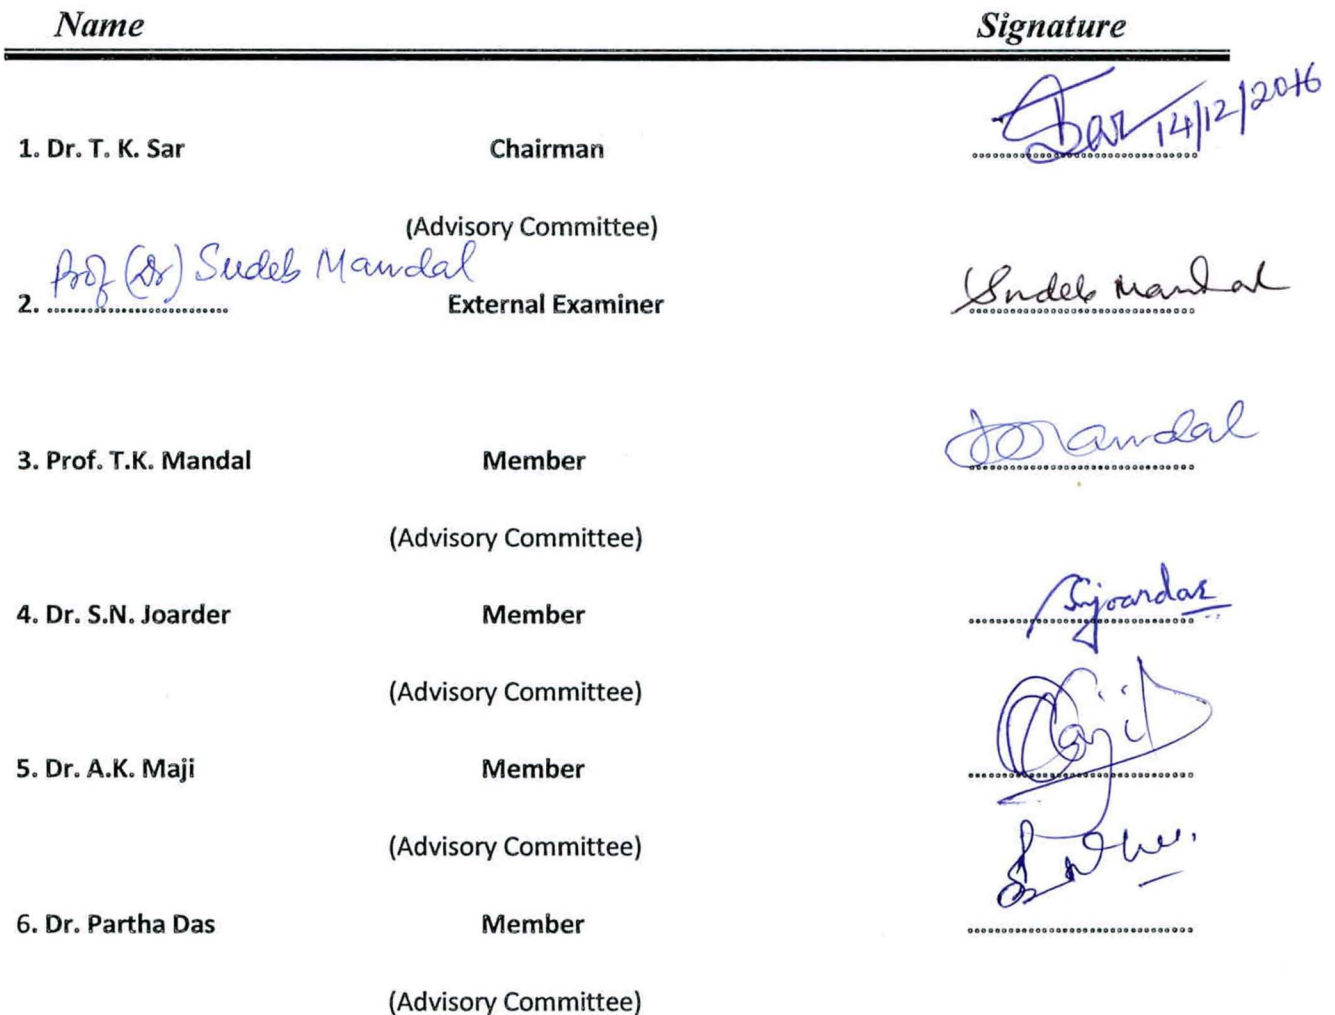 Name Signature
1. Dr. T. K. Sar Chairman Sar 14/12/2016
(Advisory Committee)
Prof (Dr) Sudeb Mandal
2. ............................ External Examiner Sudeb Mandal
3. Prof. T.K. Mandal Member Mandal
(Advisory Committee)
4. Dr. S.N. Joarder Member Snjoardar
(Advisory Committee)
5. Dr. A.K. Maji Member Maji
(Advisory Committee)
6. Dr. Partha Das Member
(Advisory Committee)